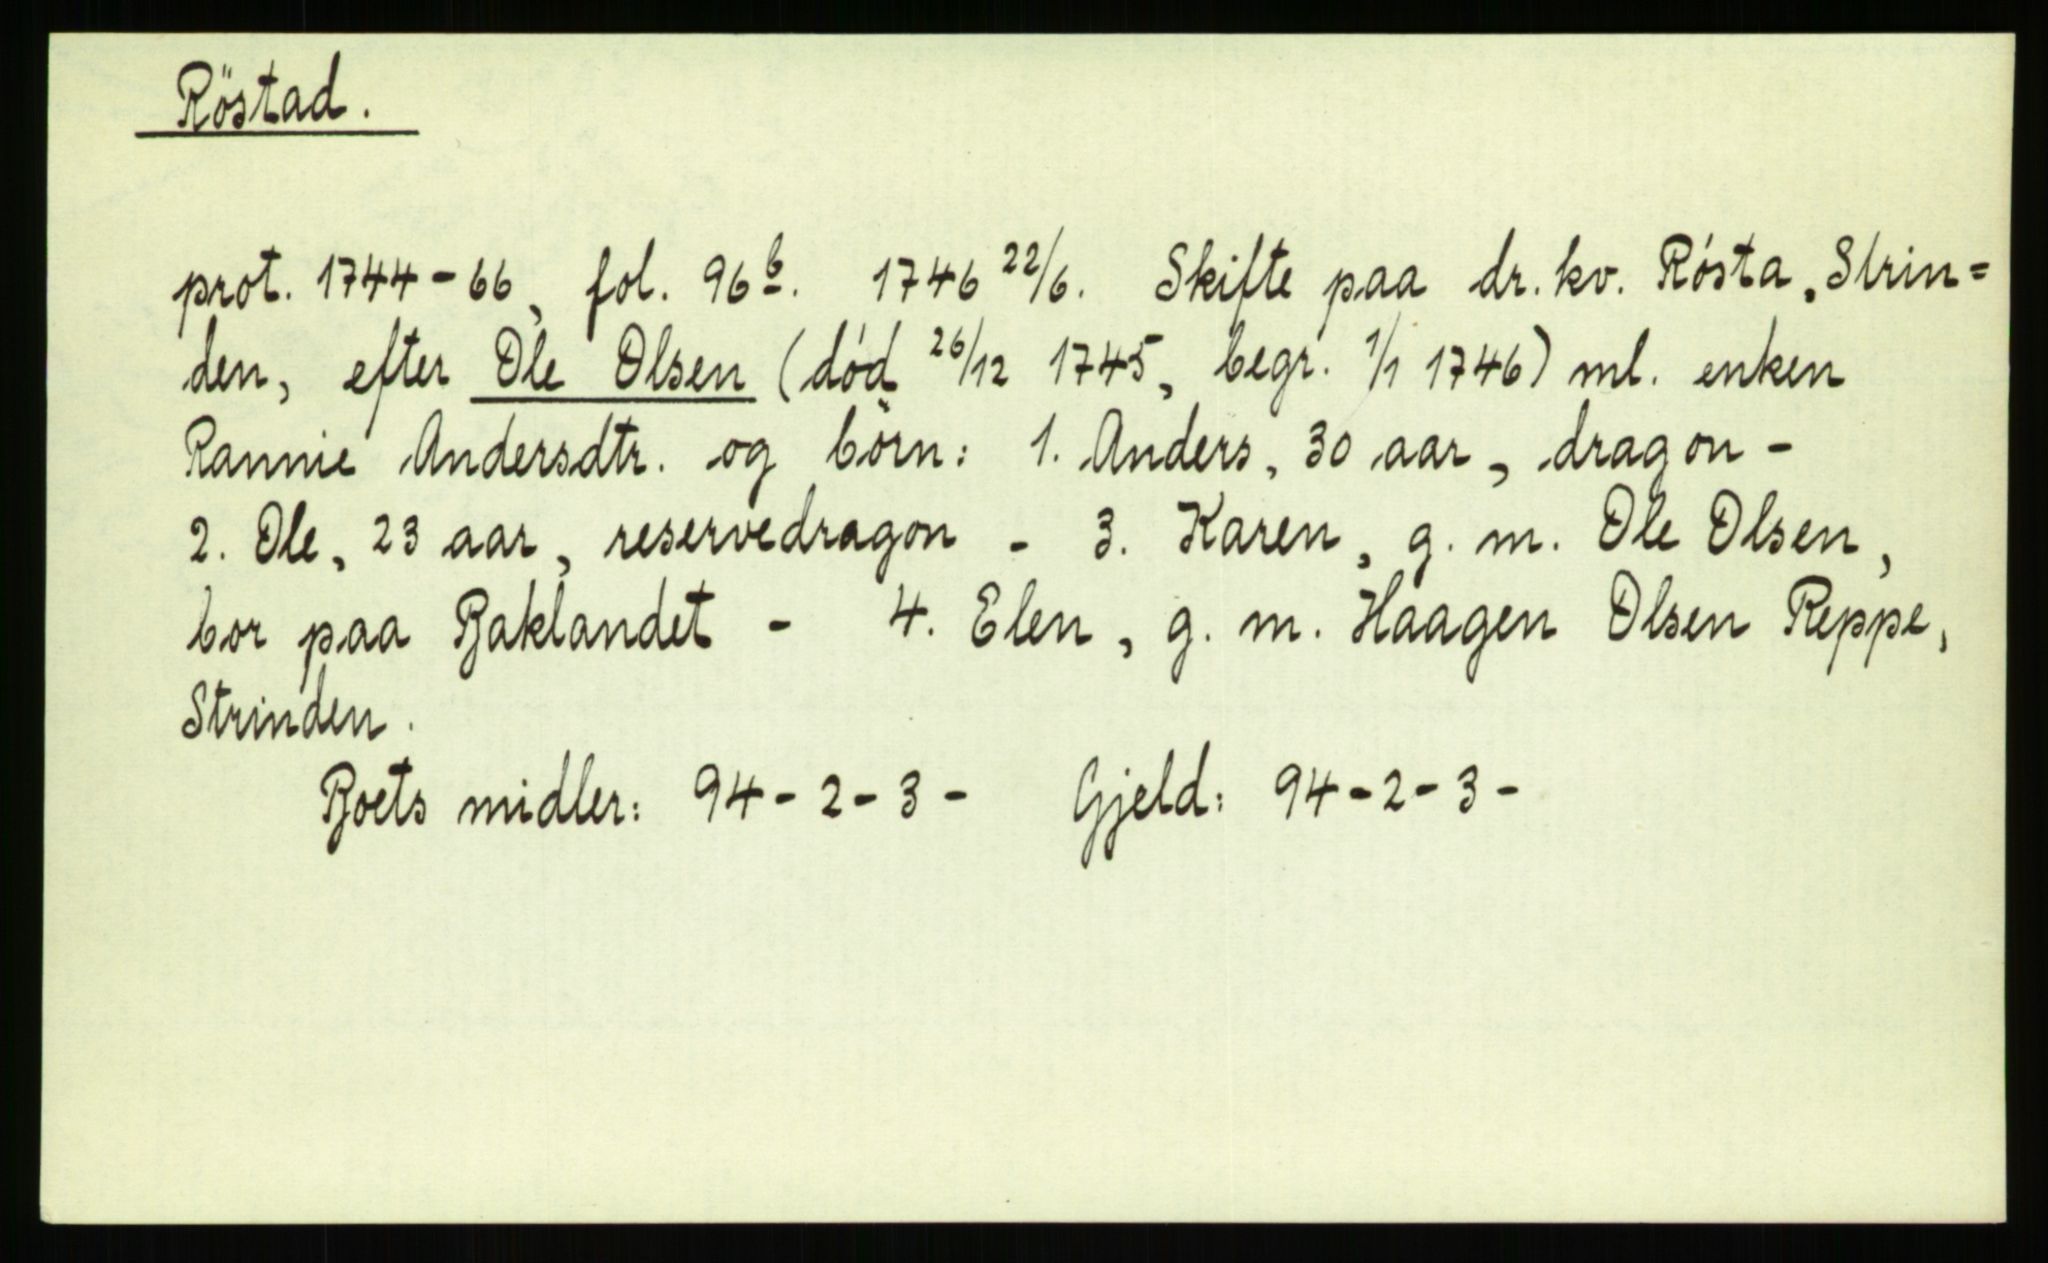 Röstad.
prot. 1744-66, fol. 96b. 1746 22/6. Skifte paa dr. kv. Rósta, Strin=
den, efter Ole Olsen (død 26/12 1745, begr. 1/1 1746) ml. enken
Rannie Andersdtr. og börn: 1. Anders, 30 aar, dragon -
2. Ole, 23 aar, reservedragon - 3. Karen, g. m. Ole Olsen,
bor paa Baklandet - 4. Elen, g. m. Haagen Olsen Reppe,
Strinden.
Boets midler: 94-2-3- Gjeld: 94-2-3-